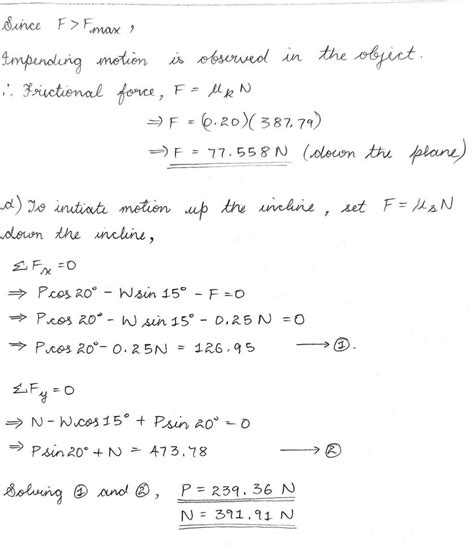 Since F > Fmax ,
Impending motion is observed in the object.
∴ Frictional force, F = μkN
⇒ F = (0.20)(387.79)
⇒ F = 77.558 N (down the plane)
d) To initiate motion up the incline, set F = μsN
down the incline,
ΣFx = 0
⇒ Pcos 20° - Wsin 15° - F = 0
⇒ Pcos 20° - W sin 15° - 0.25 N = 0
⇒ Pcos 20° - 0.25N = 126.95 ⟶ ①.
ΣFy = 0
⇒ N - W.cos 15° + Psin 20° = 0
⇒ Psin 20° + N = 473.78 ⟶ ②
Solving ① and ②, P = 239.36 N
N = 391.91 N